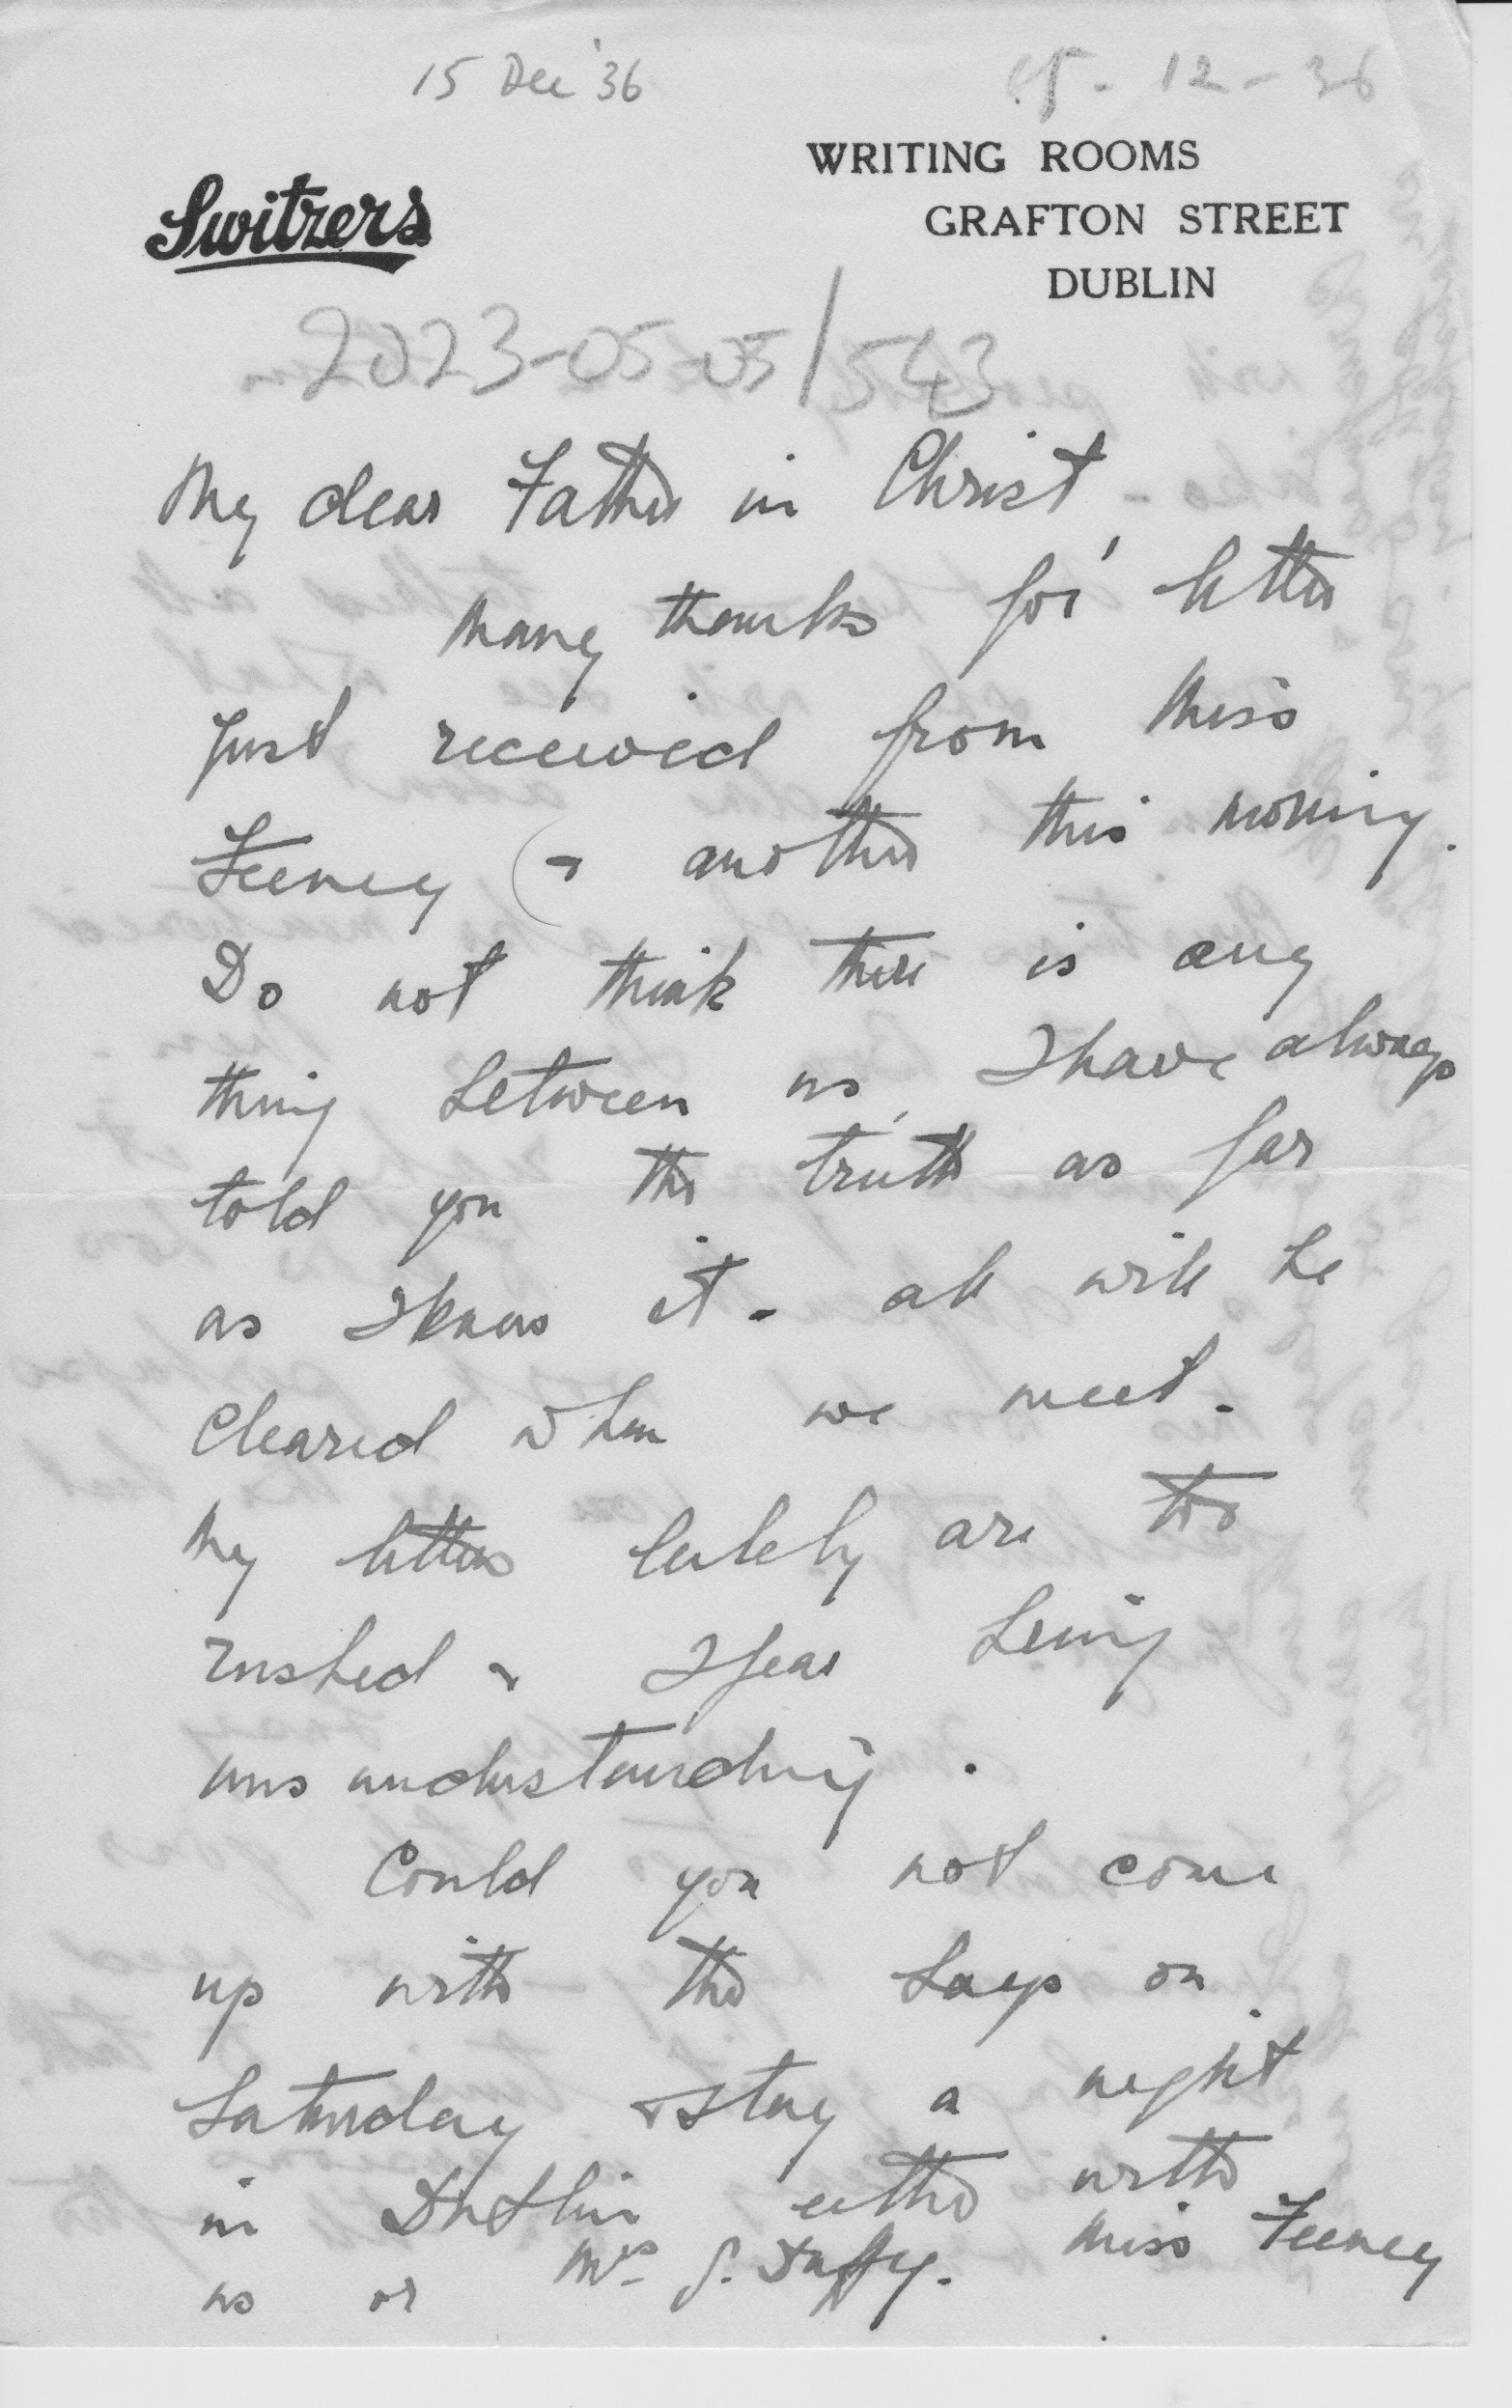 15 Dec '36
15 - 12 - 36
WRITING ROOMS
Switzers
GRAFTON STREET
DUBLIN
2023-05-05/543
My dear Father in Christ,
Many thanks for letter
just received from Miss
Feeney (& another this morning.
Do not think there is any
thing between us, I have always
told you the truth as far
as I know it - all will be
cleared when we meet -
My letters lately are too
rushed & I fear being
misunderstanding.
Could you not come
up with the boys on
Saturday & stay a night
in Dublin either with
us or Mrs J. Duffy. Miss Feeney